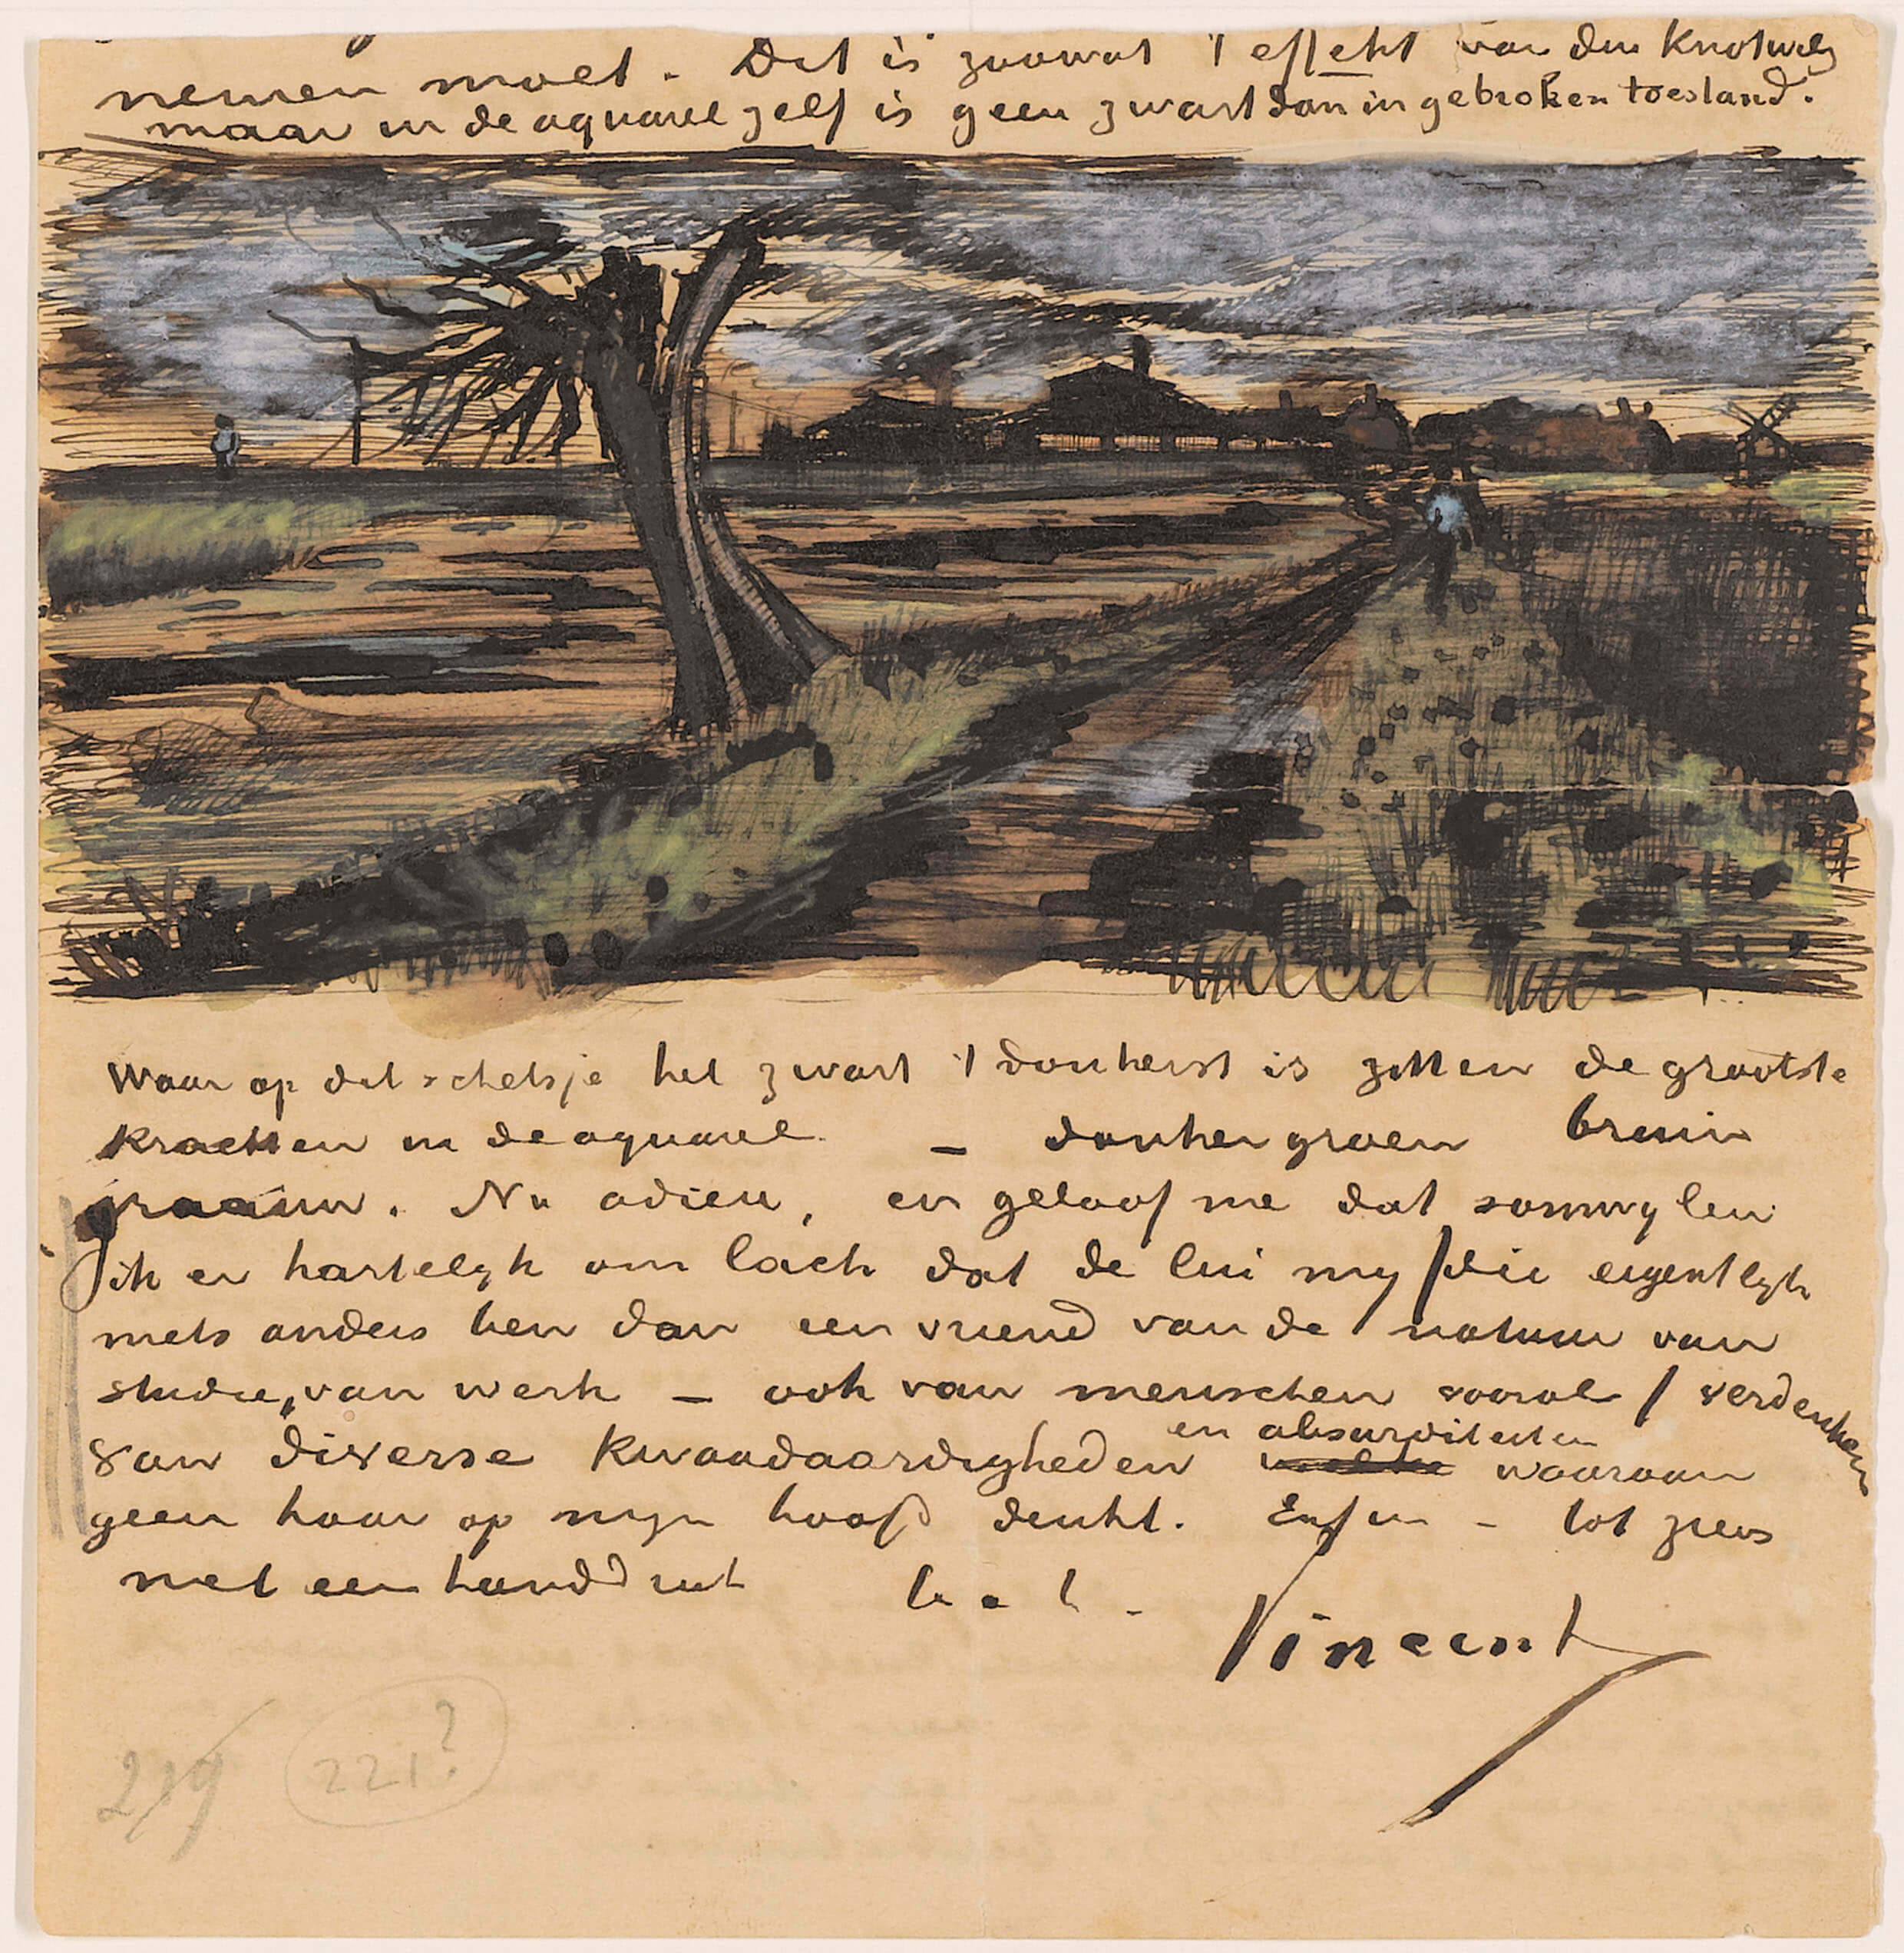 nemen moet. Dit is zoowat 't effekt van den Knotwilg
maar in de aquarel zelf is geen zwart dan in gebroken toestand.
Waar op dit schetsje het zwart 't donkerst is zitten de grootste
krachten in de aquarel – donkergroen bruin
graauw. Nu adieu, en geloof me dat somwijlen
ik er hartelijk om lach dat de lui mij /die eigentlijk
niets anders ben dan een vriend van de natuur van
studie, van werk – ook van menschen vooral/ verdenken
van diverse kwaadaardigheden en absurditeiten waaraan
geen haar op mijn hoofd denkt. Enfin – tot ziens
met een handdruk t. à t.
Vincent
219
221?